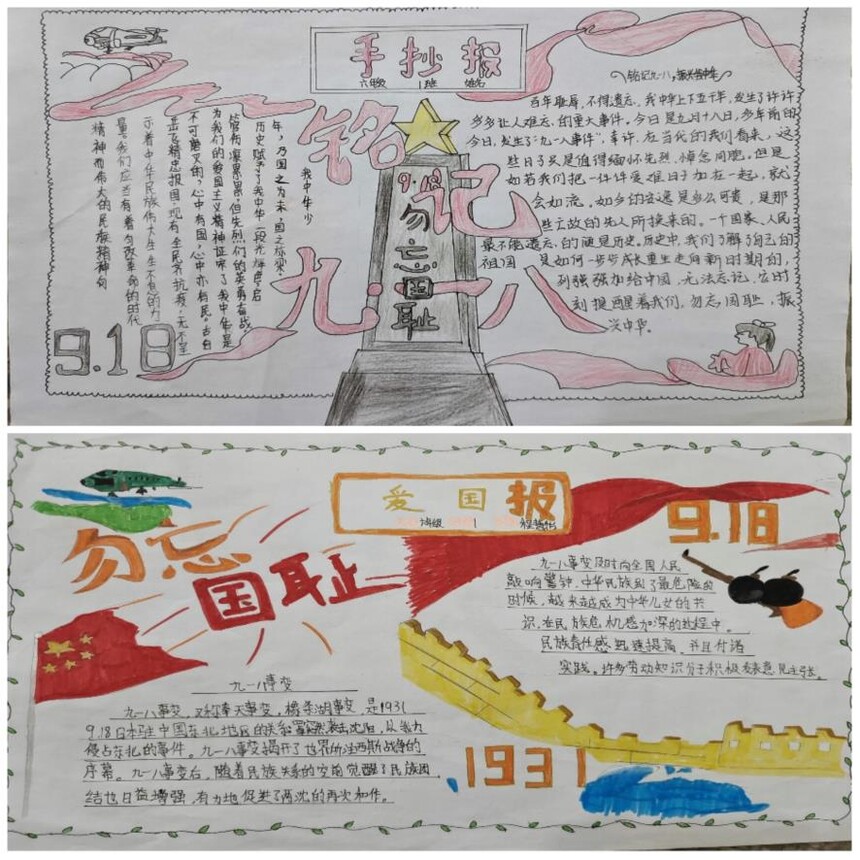 手抄报
六年级 1班 姓名
铭记
九·一八
9.18
勿忘国耻
9.18
我中华少
年,乃国之为未,国之栋梁。
为我们的爱国主义精神证
不可磨灭的,心中有国,心中亦有民。古有
岳飞精忠报国,现有全民齐抗疫,无不显
示着中华民族伟大生生不息的力
量。我们应当有着勿改革命的时代
精神而伟大的民族精神向
铭记九一八,振兴当中华
百年耻辱,不得遗忘。我中华上下五千年,发生了许许
多多让人难忘的重大事件。今日是九月十八日,多年前的
今日,发生了"九一八事件",幸许,在当代的我们看来,这
些日子只是值得缅怀先烈,悼念同胞。但是
如若我们把一件件受难日子加在一起,就
会如流,如今的安逸是多么可贵,是那
些亡故的先人所换来的。一个国家、人民
最不能遗忘的便是历史。历史中,我们了解了自己的
祖国 是如何一步步成长重生走向新时期的,
列强强加给中国,无法忘记,它时
刻提醒着我们,勿忘国耻,振
兴中华。
爱国报
班级 1
勿忘
国耻
9.18
九一八事变及时向全国人民
敲响警钟,中华民族到了最危险的
时候,越来越成为中华儿女的共
识,在民族危机感加深的过程中。
民族责任感迅速提高,并且付诸
实践。许多劳动知识分子积极表意见主张。
九一八事变
九一八事变,又称奉天事变,柳条湖事变,是1931
9.18日本在中国东北地区的关东军突然袭击沈阳,以武力
侵占东北的事件。九一八事变揭开了世界的法西斯战争的
序幕。九一八事变后,随着民族关系的空前觉醒了民族团
结也日益增强,有力地促进了两沈的再次和作。
1931